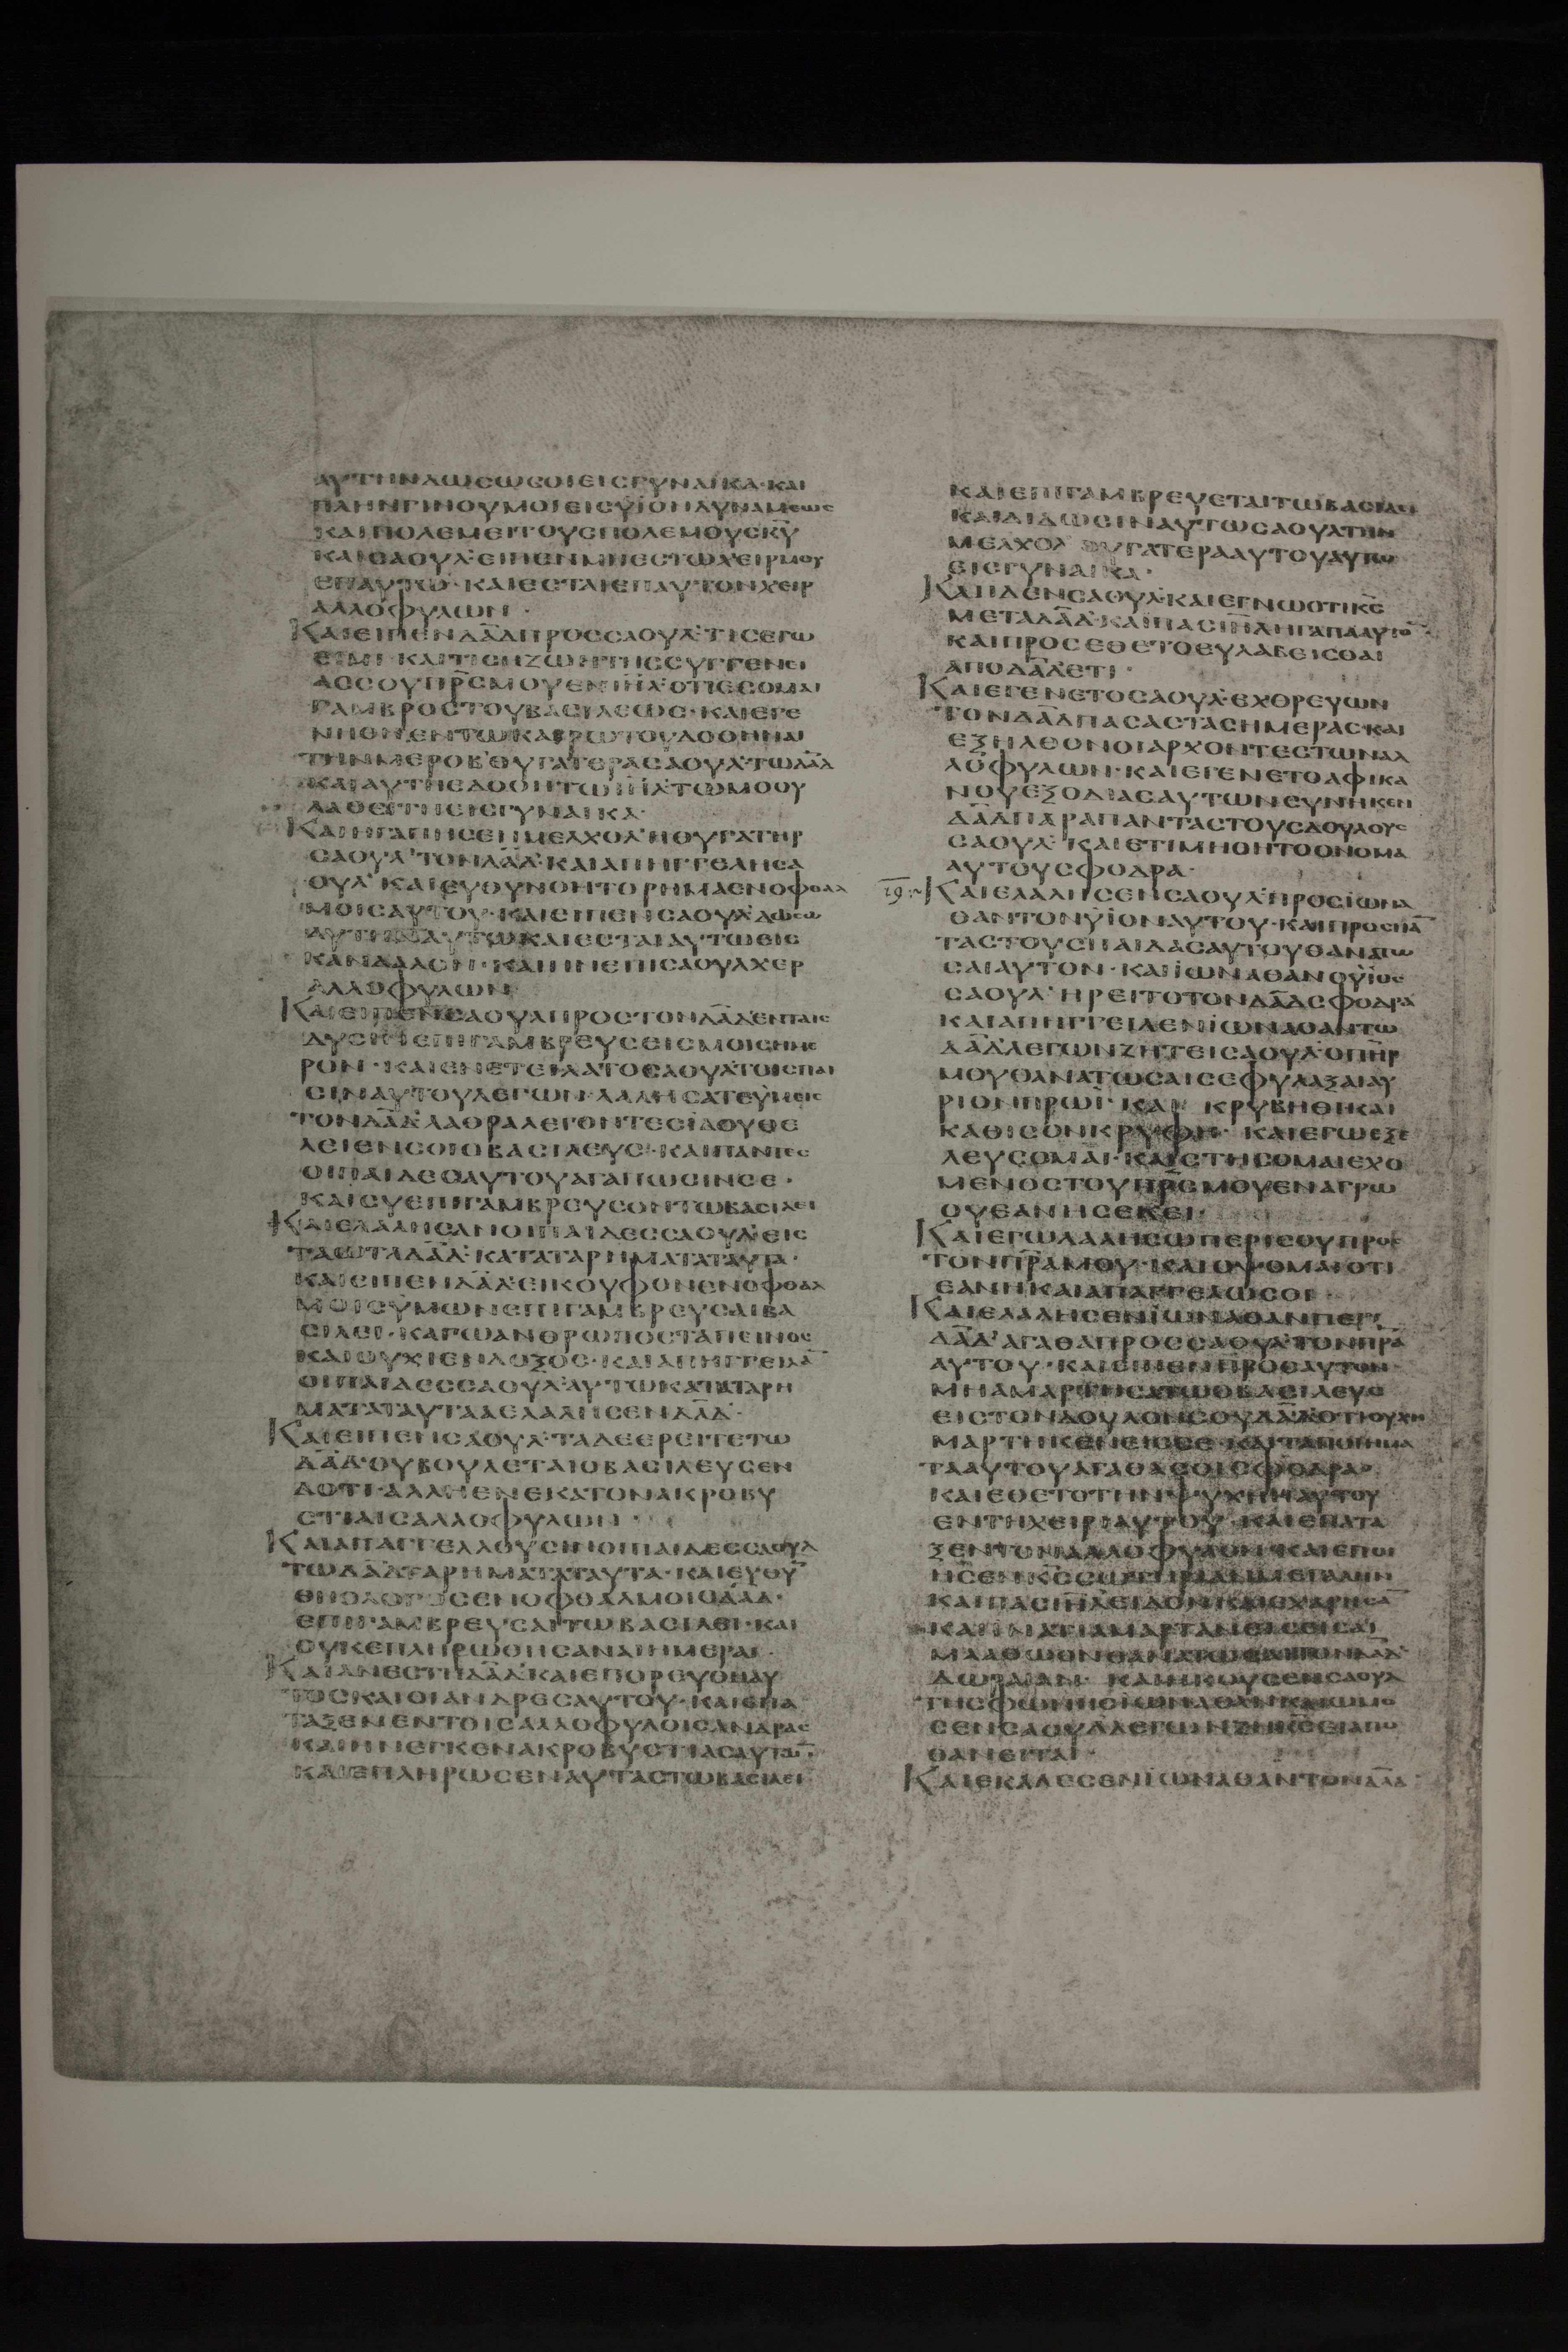 ΑΥΤΗΝΔΩΣΩΣΟΙΕΙΣΓΥΝΑΙΚΑ·ΚΑΙ
ΠΛΗΝΓΙΝΟΥΜΟΙΕΙΣΥΪΟΝΔΥΝΑΜΕΩΣ
ΚΑΙΠΟΛΕΜΕΙΤΟΥΣΠΟΛΕΜΟΥΣΚ̅Υ̅
ΚΑΙΣΑΟΥΛ·ΕΙΠΕΝΜΗΕΣΤΩΧΕΙΡΜΟΥ
ΕΠΑΥΤΩ·ΚΑΙΕΣΤΑΙΕΠΑΥΤΟΝΧΕΙΡ
ΑΛΛΟΦΥΛΩΝ·
ΚΑΙΕΙΠΕΝΔ̅Α̅Δ̅ΠΡΟΣΣΑΟΥΛ·ΤΙΣΕΓΩ
ΕΙΜΙ·ΚΑΙΤΙΣΗΖΩΗΤΗΣΣΥΓΓΕΝΕΙ
ΑΣΣΟΥΠ̅Ρ̅Σ̅ΜΟΥΕΝΙ̅Η̅Λ̅·ΟΤΙΕΣΟΜΑΙ
ΓΑΜΒΡΟΣΤΟΥΒΑΣΙΛΕΩΣ·ΚΑΙΕΓΕ
ΝΗΘΗΕΝΤΩΚΑΙΡΩΤΟΥΔΟΘΗΝΑΙ
ΤΗΝΜΕΡΟΒ·ΘΥΓΑΤΕΡΑΣΑΟΥΛ·ΤΩΔ̅Α̅Δ̅
ΚΑΙΑΥΤΗΕΔΟΘΗΤΩΙ̅Η̅Λ̅·ΤΩΜΟΟΥ
ΛΑΘΕΙΤΗΕΙΣΓΥΝΑΙΚΑ·
ΚΑΙΗΓΑΠΗΣΕΝΜΕΛΧΟΛ·ΗΘΥΓΑΤΗΡ
ΣΑΟΥΛ·ΤΟΝΔ̅Α̅Δ̅·ΚΑΙΑΠΗΓΓΕΛΗΣΑ
ΟΥΛ·ΚΑΙΕΥΘΥΝΘΗΤΟΡΗΜΑΕΝΟΦΘΑΛ
ΜΟΙΣΑΥΤΟΥ·ΚΑΙΕΙΠΕΝΣΑΟΥΛ·ΔΩΣΩ
ΑΥΤΗΝΑΥΤΩΚΑΙΕΣΤΑΙΑΥΤΩΕΙΣ
ΣΚΑΝΔΑΛΟΝ·ΚΑΙΗΝΕΠΙΣΑΟΥΛΧΕΡ
ΑΛΛΟΦΥΛΩΝ
ΚΑΙΕΙΠΕΝΣΑΟΥΛΠΡΟΣΤΟΝΔ̅Α̅Δ̅·ΕΝΤΑΙΣ
ΔΥΣΙΝΕΠΙΓΑΜΒΡΕΥΣΕΙΣΜΟΙΣΗΜΕ
ΡΟΝ·ΚΑΙΕΝΕΤΕΙΛΑΤΟΣΑΟΥΛ·ΤΟΙΣΠΑΙ
ΣΙΝΑΥΤΟΥΛΕΓΩΝ·ΛΑΛΗΣΑΤΕΥΜΕΙΣ
ΤΟΝΔ̅Α̅Δ̅·ΛΑΘΡΑΛΕΓΟΝΤΕΣΙΔΟΥΘΕ
ΛΕΙΕΝΣΟΙΟΒΑΣΙΛΕΥΣ·ΚΑΙΠΑΝΤΕΣ
ΟΙΠΑΙΔΕΣΑΥΤΟΥΑΓΑΠΩΣΙΝΣΕ·
ΚΑΙΣΥΕΠΙΓΑΜΒΡΕΥΣΟΝΤΩΒΑΣΙΛΕΙ
ΚΑΙΕΛΑΛΗΣΑΝΟΙΠΑΙΔΕΣΣΑΟΥΛ·ΕΙΣ
ΤΑΩΤΑΔ̅Α̅Δ̅·ΚΑΤΑΤΑΡΗΜΑΤΑΤΑΥΤΑ·
ΚΑΙΕΙΠΕΝΔ̅Α̅Δ̅·ΕΙΚΟΥΦΟΝΕΝΟΦΘΑΛ
ΜΟΙΣΥΜΩΝΕΠΙΓΑΜΒΡΕΥΣΑΙΒΑ
ΣΙΛΕΙ·ΚΑΓΩΑΝΘΡΩΠΟΣΤΑΠΕΙΝΟΣ
ΚΑΙΟΥΧΙΕΝΔΟΞΟΣ·ΚΑΙΑΠΗΓΓΕΙΛΑ̅
ΟΙΠΑΙΔΕΣΣΑΟΥΛ·ΑΥΤΩΚΑΤΑΤΑΡΗ
ΜΑΤΑΤΑΥΤΑΑΕΛΑΛΗΣΕΝΔ̅Α̅Δ̅·
ΚΑΙΕΙΠΕΝΣΑΟΥΛ·ΤΑΔΕΕΡΕΙΤΕΤΩ
Δ̅Α̅Δ̅·ΟΥΒΟΥΛΕΤΑΙΟΒΑΣΙΛΕΥΣΕΝ
ΔΟΤΙ·ΑΛΛΗΕΝΕΚΑΤΟΝΑΚΡΟΒΥ
ΣΤΙΑΙΣΑΛΛΟΦΥΛΩΝ·
ΚΑΙΑΠΑΓΓΕΛΛΟΥΣΙΝΟΙΠΑΙΔΕΣΣΑΟΥΛ
ΤΩΔ̅Α̅Δ̅ΤΑΡΗΜΑΤΑΤΑΥΤΑ·ΚΑΙΕΥΘΥ̅
ΘΗΟΛΟΓΟΣΕΝΟΦΘΑΛΜΟΙΣΔ̅Α̅Δ̅·
ΕΠΙΓΑΜΒΡΕΥΣΑΙΤΩΒΑΣΙΛΕΙ·ΚΑΙ
ΟΥΚΕΠΛΗΡΩΘΗΣΑΝΑΙΗΜΕΡΑΙ·
ΚΑΙΑΝΕΣΤΗΔ̅Α̅Δ̅·ΚΑΙΕΠΟΡΕΥΘΗΑΥ
ΤΟΣΚΑΙΟΙΑΝΔΡΕΣΑΥΤΟΥ·ΚΑΙΕΠΑ
ΤΑΞΕΝΕΝΤΟΙΣΑΛΛΟΦΥΛΟΙΣΑΝΔΡΑΣ
ΚΑΙΗΝΕΓΚΕΝΑΚΡΟΒΥΣΤΙΑΣΑΥΤΩ̅·
ΚΑΙΕΠΛΗΡΩΣΕΝΑΥΤΑΣΤΩΒΑΣΙΛΕΙ
ΚΑΙΕΠΙΓΑΜΒΡΕΥΕΤΑΙΤΩΒΑΣΙΛΕΙ
ΚΑΙΔΙΔΩΣΙΝΑΥΤΩΣΑΟΥΛΤΗΝ
ΜΕΛΧΟΛ ΘΥΓΑΤΕΡΑΑΥΤΟΥΑΥΤΩ
ΕΙΣΓΥΝΑΙΚΑ·
ΚΑΙΙΔΕΝΣΑΟΥΛ·ΚΑΙΕΓΝΩΟΤΙΚ̅Σ̅
ΜΕΤΑΔ̅Α̅Δ̅·ΚΑΙΠΑΣΙ̅Η̅Λ̅ΗΓΑΠΑΑΥΤΟ̅·
ΚΑΙΠΡΟΣΕΘΕΤΟΕΥΛΑΒΕΙΣΘΑΙ
ΑΠΟΔ̅Α̅Δ̅ΕΤΙ·
ΚΑΙΕΓΕΝΕΤΟΣΑΟΥΛ·ΕΧΘΡΕΥΩΝ
ΤΟΝΔ̅Α̅Δ̅ΠΑΣΑΣΤΑΣΗΜΕΡΑΣΚΑΙ
ΕΞΗΛΘΟΝΟΙΑΡΧΟΝΤΕΣΤΩΝΑΛ
ΛΟΦΥΛΩΝ·ΚΑΙΕΓΕΝΕΤΟΑΦΙΚΑ
ΝΟΥΕΞΟΔΙΑΣΑΥΤΩΝΣΥΝΗΚΕΝ
Δ̅Α̅Δ̅ΠΑΡΑΠΑΝΤΑΣΤΟΥΣΔΟΥΛΟΥΣ
ΣΑΟΥΛ·ΚΑΙΕΤΙΜΗΘΗΤΟΟΝΟΜΑ
ΑΥΤΟΥΣΦΟΔΡΑ·
19 ΚΑΙΕΛΑΛΗΣΕΝΣΑΟΥΛ·ΠΡΟΣΪΩΝΑ
ΘΑΝΤΟΝΥΪΟΝΑΥΤΟΥ·ΚΑΙΠΡΟΣΠΑ̅
ΤΑΣΤΟΥΣΠΑΙΔΑΣΑΥΤΟΥΘΑΝΑΤΩ
ΣΑΙΑΥΤΟΝ·ΚΑΙΪΩΝΑΘΑΝΟΥΪΟΣ
ΣΑΟΥΛ·ΗΡΕΙΤΟΤΟΝΔ̅Α̅Δ̅ΣΦΟΔΡΑ
ΚΑΙΑΠΗΓΓΕΙΛΕΝΪΩΝΑΘΑΝΤΩ
Δ̅Α̅Δ̅·ΛΕΓΩΝΖΗΤΕΙΣΑΟΥΛ·ΟΠ̅Η̅Ρ̅
ΜΟΥΘΑΝΑΤΩΣΑΙΣΕΦΥΛΑΞΑΙΑΥ
ΡΙΟΝΠΡΩΪ·ΚΑΙ ΚΡΥΒΗΘΙΚΑΙ
ΚΑΘΙΣΟΝΚΡΥΦΗ· ΚΑΙΕΓΩΕΞΕ
ΛΕΥΣΟΜΑΙ·ΚΑΙΣΤΗΣΟΜΑΙΕΧΟ
ΜΕΝΟΣΤΟΥΠ̅Ρ̅Σ̅ΜΟΥΕΝΑΓΡΩ
ΟΥΕΑΝΗΣΕΚΕΙ·
ΚΑΙΕΓΩΛΑΛΗΣΩΠΕΡΙΣΟΥΠΡΟΣ
ΤΟΝΠ̅Ρ̅Α̅ΜΟΥ·ΚΑΙΟΨΟΜΑΙΟΤΙ
ΕΑΝΗΚΑΙΑΠΑΓΓΕΛΩΣΟΙ·
ΚΑΙΕΛΑΛΗΣΕΝΪΩΝΑΘΑΝΠΕΡΙ
Δ̅Α̅Δ̅·ΑΓΑΘΑΠΡΟΣΣΑΟΥΛ·ΤΟΝΠ̅Ρ̅Α̅
ΑΥΤΟΥ·ΚΑΙΕΙΠΕΝΠΡΟΣΑΥΤΟΝ·
ΜΗΑΜΑΡΤΗΣΑΤΩΟΒΑΣΙΛΕΥΣ
ΕΙΣΤΟΝΔΟΥΛΟΝΣΟΥΔ̅Α̅Δ̅ΟΤΙΟΥΧΗ
ΜΑΡΤΗΚΕΝΕΙΣΣΕ·ΚΑΙΤΑΠΟΙΗΜΑ
ΤΑΑΥΤΟΥΑΓΑΘΑΣΟΙΣΦΟΔΡΑ·
ΚΑΙΕΘΕΤΟΤΗΝΨΥΧΗΝΑΥΤΟΥ
ΕΝΤΗΧΕΙΡΙΑΥΤΟΥ·ΚΑΙΕΠΑΤΑ
ΞΕΝΤΟΝΑΛΛΟΦΥΛΟΝ·ΚΑΙΕΠΟΙ
ΗΣΕΝΚ̅Σ̅ΣΩΤΗΡΙΑΝΜΕΓΑΛΗΝ
ΚΑΙΠΑΣΙ̅Η̅Λ̅ΕΙΔΟΝΚΑΙΕΧΑΡΗΣΑ̅
ΚΑΙΙΝΑΤΙΑΜΑΡΤΑΝΕΙΣΕΙΣΑΙ
ΜΑΑΘΩΟΝΘΑΝΑΤΩΣΑΙΤΟΝΔ̅Α̅Δ̅
ΔΩΡΕΑΝ· ΚΑΙΗΚΟΥΣΕΝΣΑΟΥΛ
ΤΗΣΦΩΝΗΣΪΩΝΑΘΑΝΚΑΙΩΜΟ
ΣΕΝΣΑΟΥΛ·ΛΕΓΩΝΖΗΚ̅Σ̅ΕΙΑΠΟ
ΘΑΝΕΙΤΑΙ·
ΚΑΙΕΚΑΛΕΣΕΝΪΩΝΑΘΑΝΤΟΝΔ̅Α̅Δ̅·